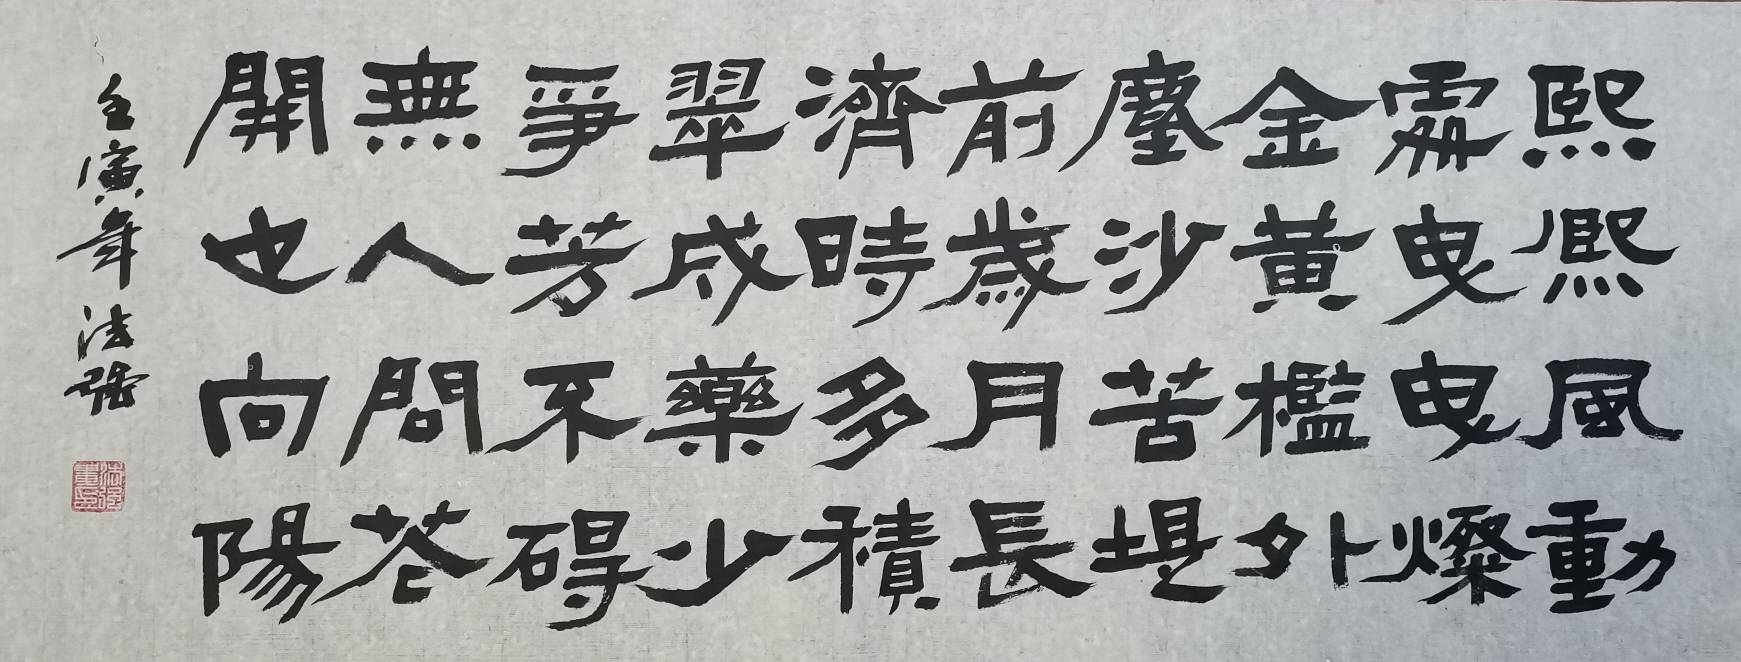 熙熙風動
處曳曳燦
金黃檻外
塵沙苦堤
前歲月長
濟時多積
翠成藥少
爭芳不礙
無人問花
開也向陽
壬寅年法強